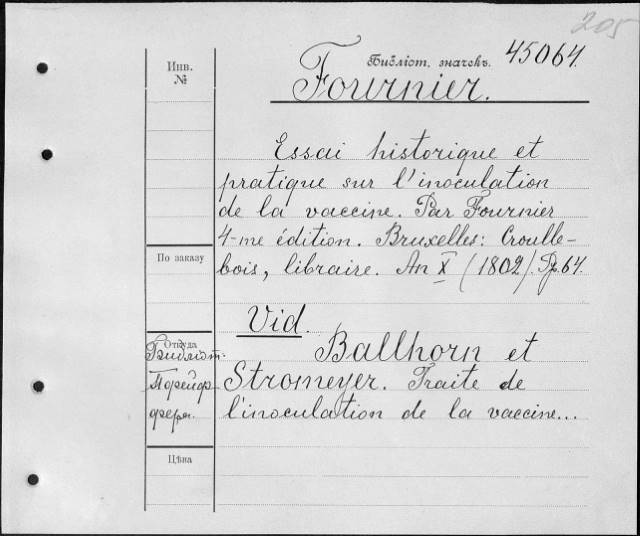 205
Инв.
№
Библіот. значекъ. 45064.
Fournier.
Essai historique et
pratique sur l'inoculation
de la vaccine. Par Fournier
4-me édition. Bruxelles: Croulle-
bois, libraire. An X (1802). Pp. 64.
По заказу
Vid.
Ballhorn et
Stromeyer. Traite de
l'inoculation de la vaccine...
Откуда
Библіот.
Порейдр-
фера.
Цѣна